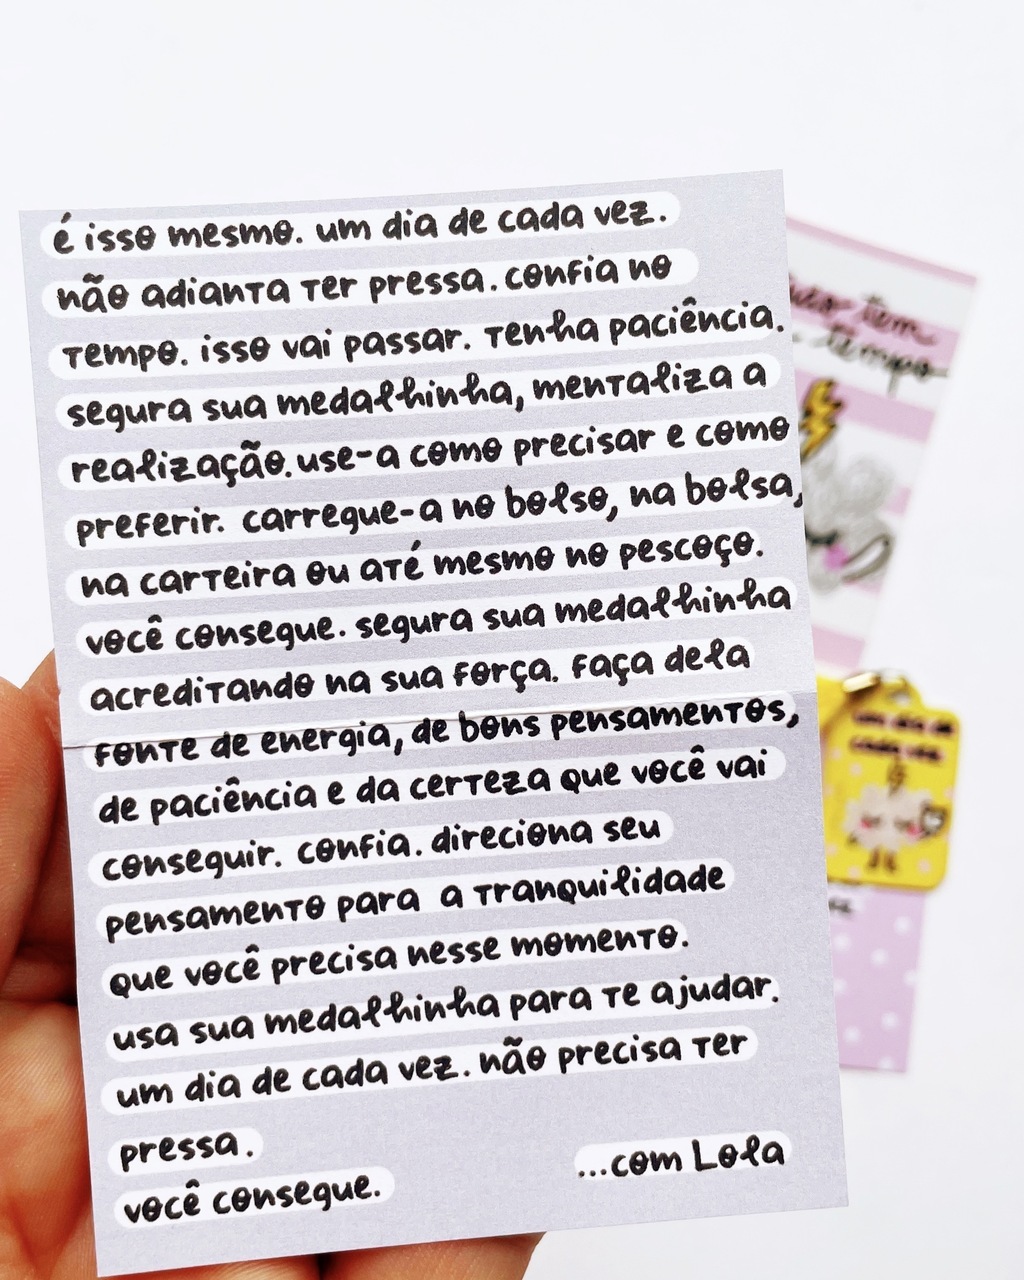 é isso mesmo. um dia de cada vez.
não adianta ter pressa. confia no
tempo. isso vai passar. tenha paciência.
segura sua medalhinha, mentaliza a
realização. use-a como precisar e como
preferir. carregue-a no bolso, na bolsa,
na carteira ou até mesmo no pescoço.
você consegue. segura sua medalhinha
acreditando na sua força. faça dela
fonte de energia, de bons pensamentos,
de paciência e da certeza que você vai
conseguir. confia. direciona seu
pensamento para a tranquilidade
que você precisa nesse momento.
usa sua medalhinha para te ajudar.
um dia de cada vez. não precisa ter
pressa.
você consegue.
...com Lola
tem
tempo
um dia de
cada vez.